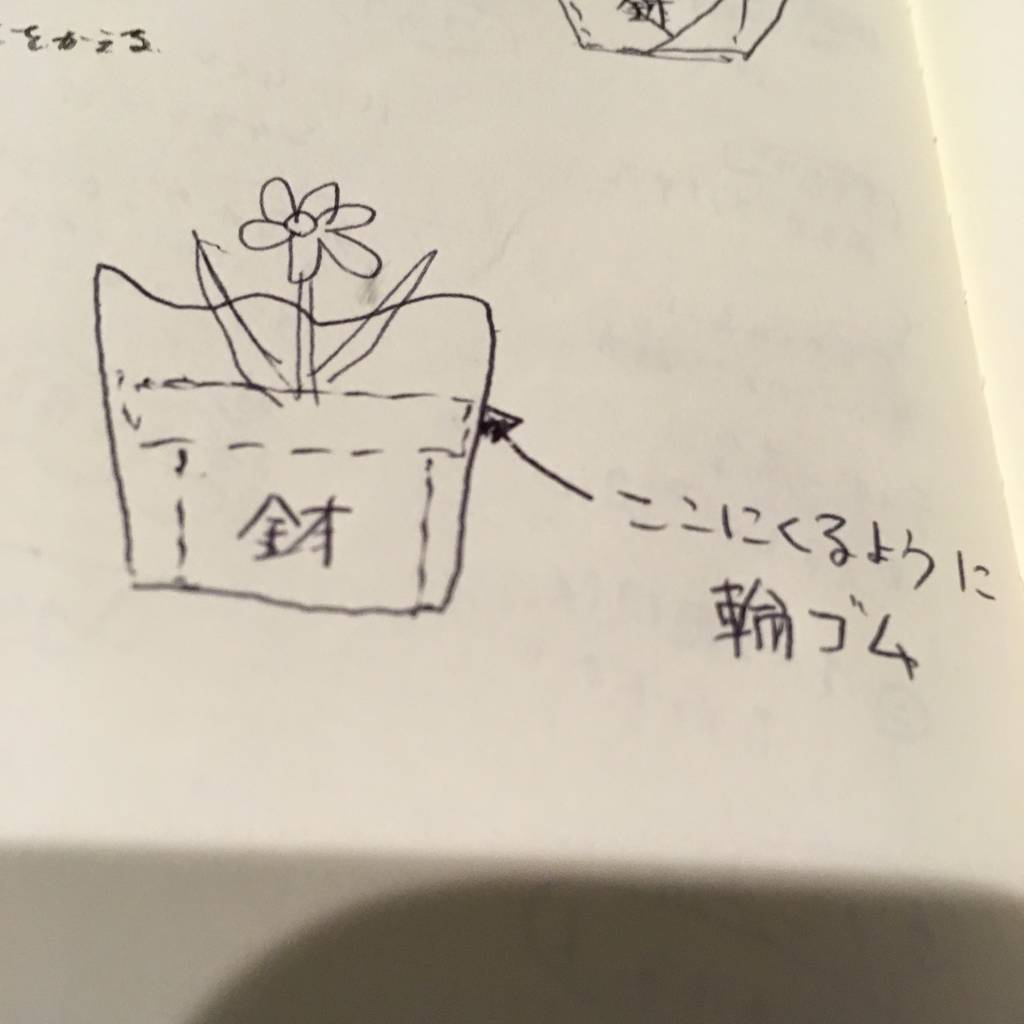 をかえる
鉢
鉢
ここにくるように
輪ゴム